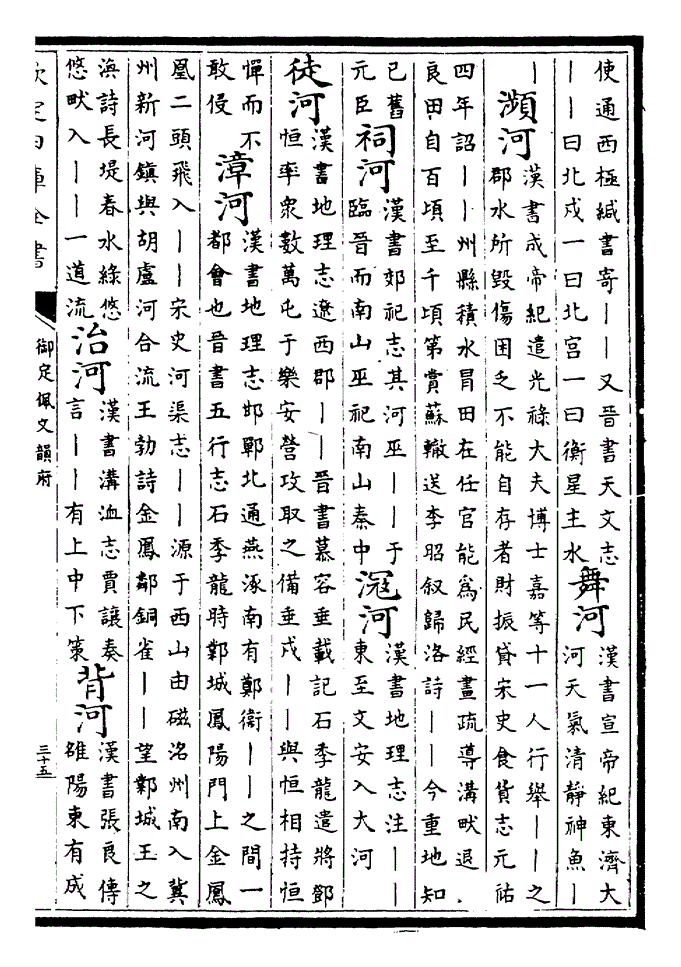 使通西極緘書寄｜｜又晉書天文志
｜｜曰北戍一曰北宫一曰衡星主水
舞河
漢書宣帝紀東濟大
河天氣清靜神魚｜
｜
瀕河
漢書成帝紀遣光祿大夫博士嘉等十一人行舉｜｜之
郡水所毁傷困乏不能自存者財振貸宋史食貨志元祐
四年詔｜｜州縣積水冒田在任官能爲民經畫疏導溝畎退
良田自百頃至千頃第賞蘇轍送李昭叙歸洛詩｜｜今重地知
已舊
元臣
祠河
漢書郊祀志其河巫｜｜于
臨晉而南山巫祀南山秦中
滱河
漢書地理志注｜｜
東至文安入大河
徒河
漢書地理志遼西郡｜｜晉書慕容垂載記石季龍遣將鄧
恒率衆數萬屯于樂安營攻取之備垂戍｜｜與恒相持恒
憚而不
敢侵
漳河
漢書地理志邯鄲北通燕涿南有鄭衛｜｜之間一
都會也晉書五行志石季龍時鄴城鳳陽門上金鳳
凰二頭飛入｜｜宋史河渠志｜｜源于西山由磁洺州南入冀
州新河鎮與胡盧河合流王勃詩金鳳鄰銅雀｜｜望鄴城王之
渙詩長堤春水綠悠
悠畎入｜｜一道流
治河
漢書溝洫志賈讓奏
言｜｜有上中下策
背河
漢書張良傳
雒陽東有成
欽定四庫全書
御定佩文韻府
三十五